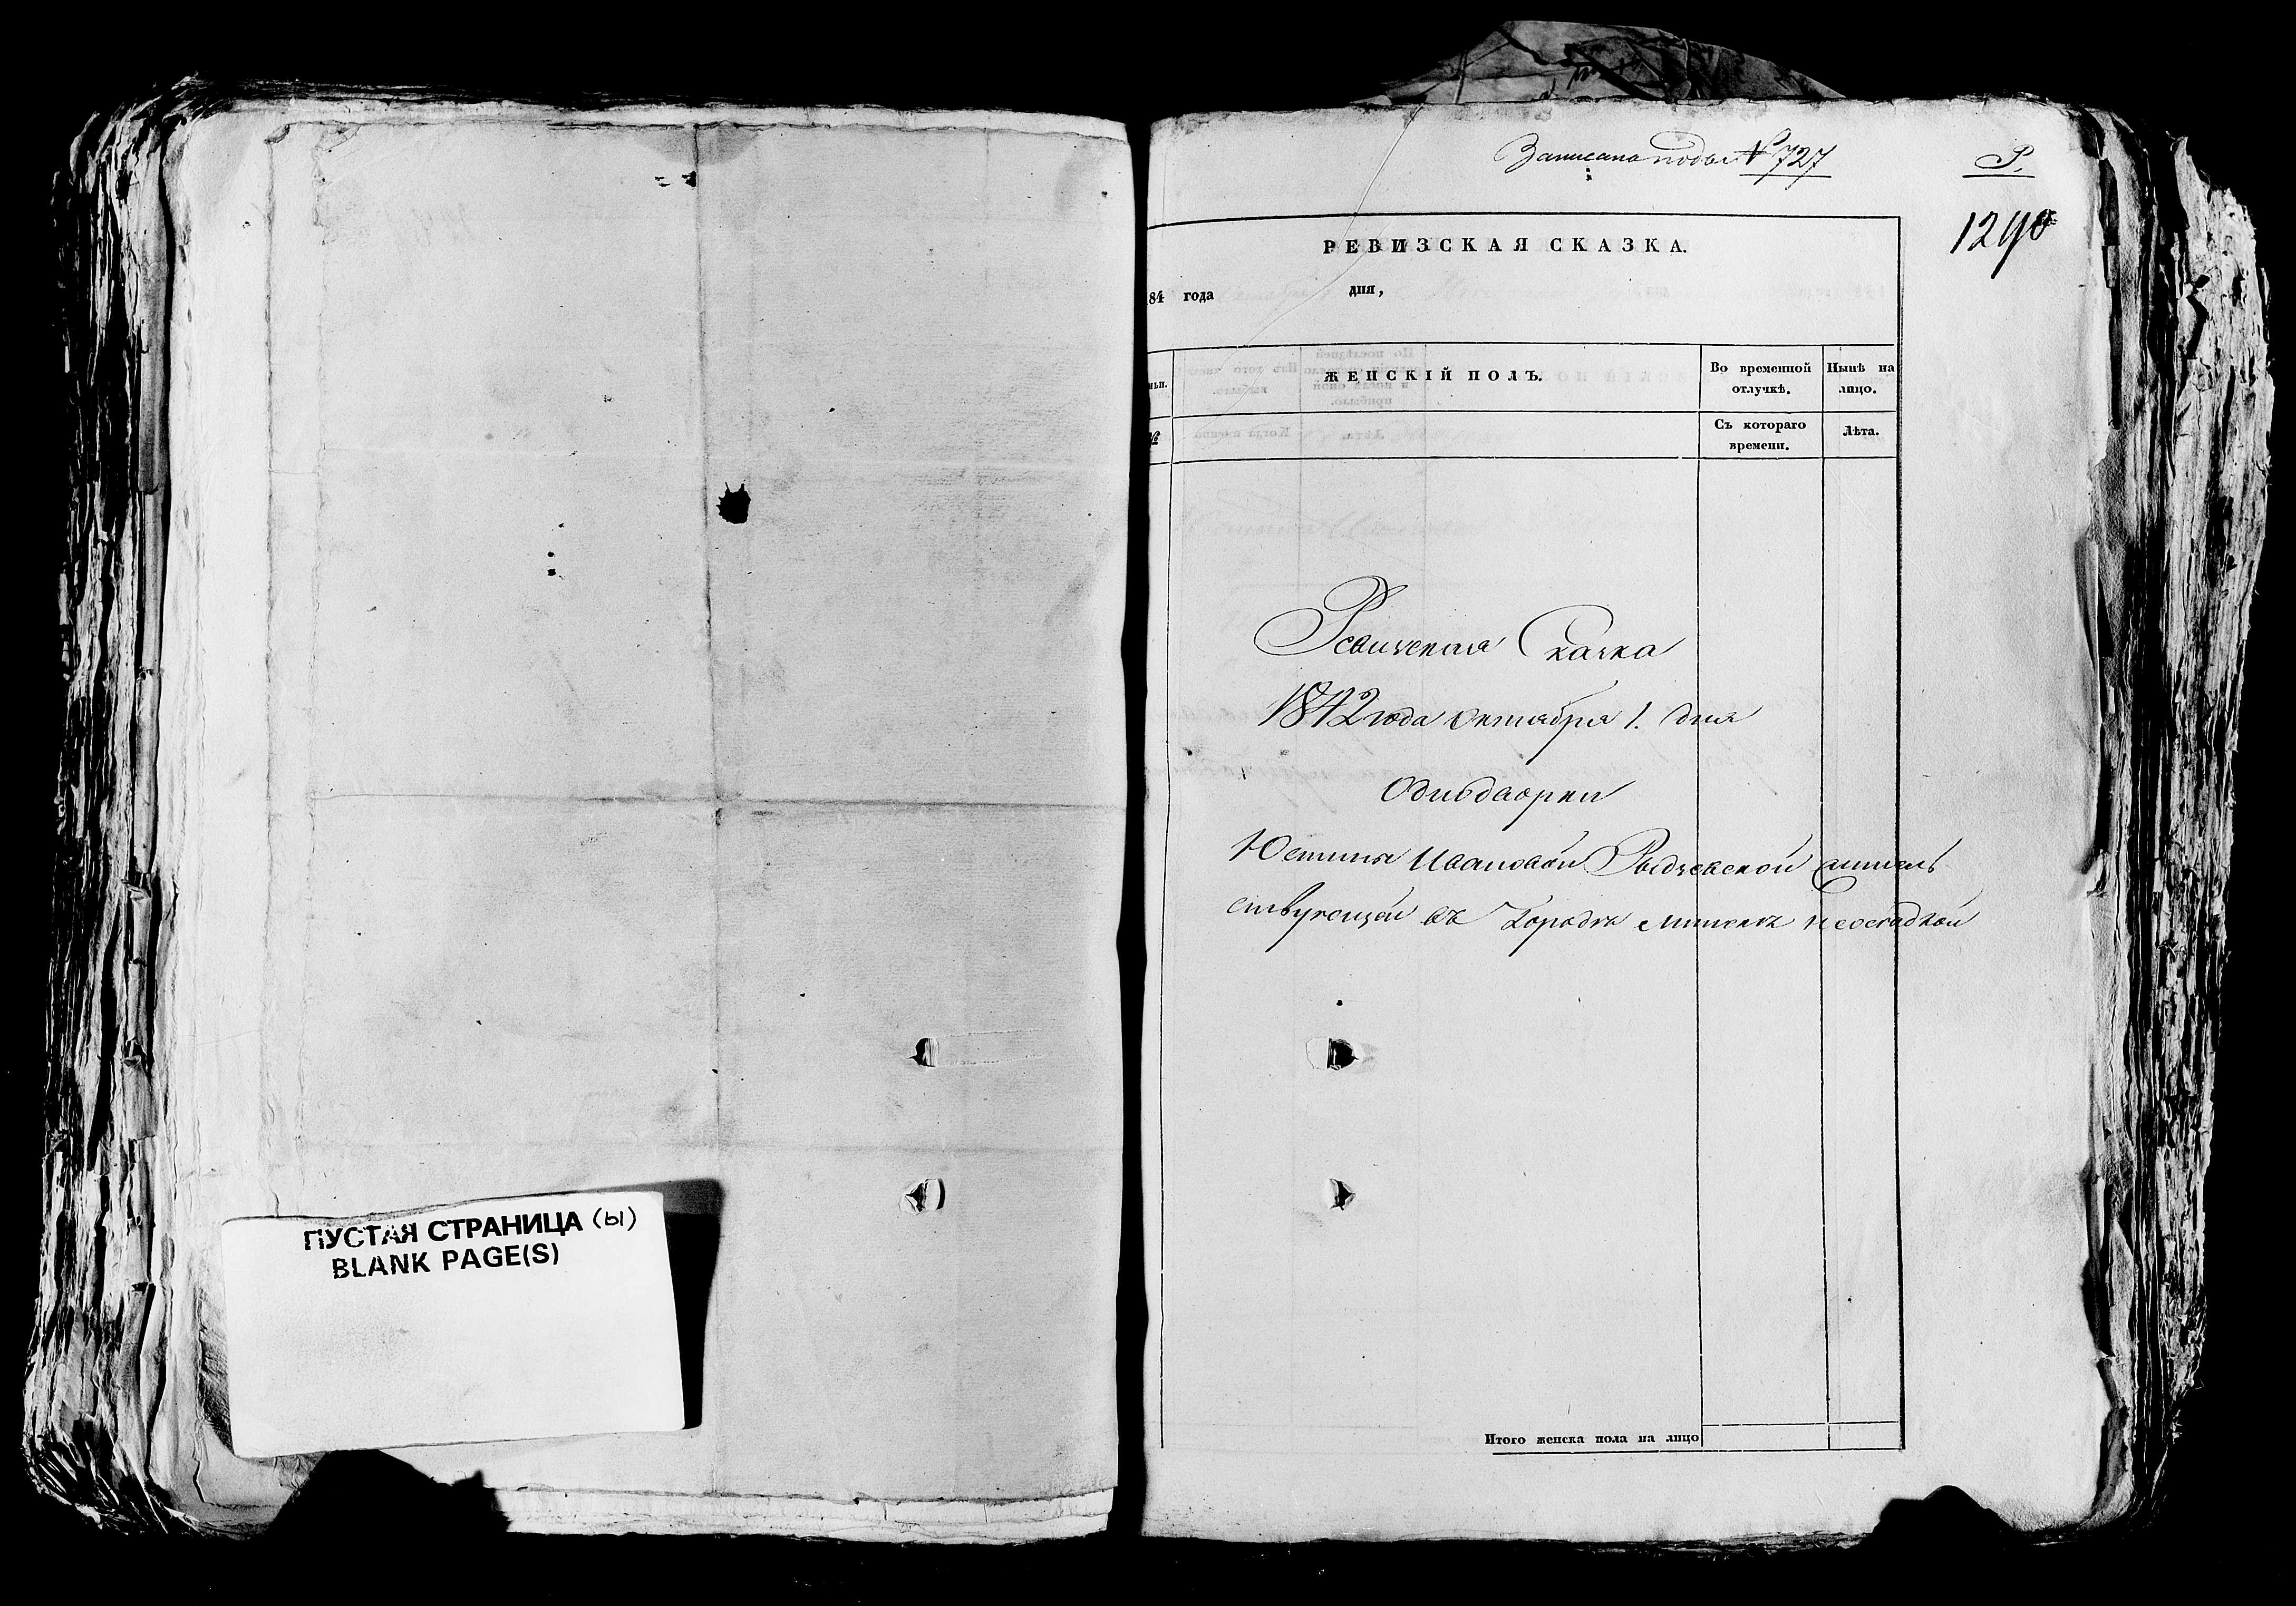 ПУСТАЯ СТРАНИЦА (ы)
BLANK PAGE(S)
Записана подъ № 727
Р.
1290
РЕВИЗСКАЯ СКАЗКА.
84 года дня,
ЖЕНСКІЙ ПОЛЪ.
Во временной отлучкѣ.
Нынѣ на лицо.
№
Съ котораго времени.
Лѣта.
Ревизская Сказка
1842 года октября 1. дня
Однодворки
Юстины Ивановой житель
ствующей въ Городѣ Минскѣ неоседлой
Итого женска пола на лицо